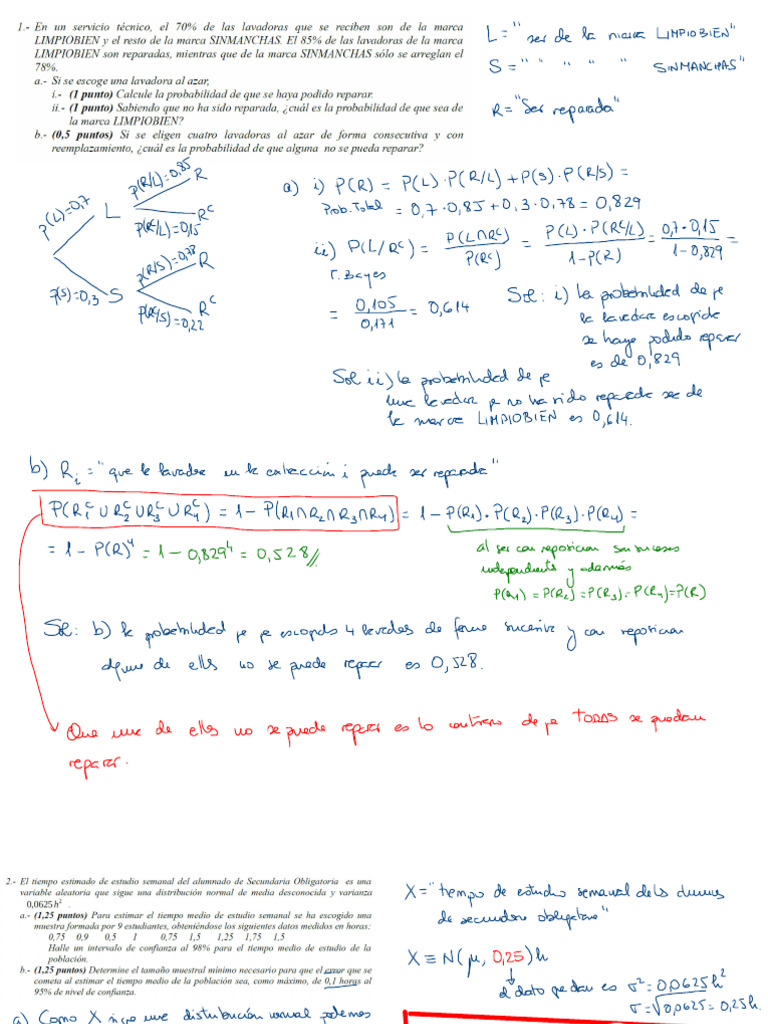 1.- En un servicio técnico, el 70% de las lavadoras que se reciben son de la marca
LIMPIOBIEN y el resto de la marca SINMANCHAS. El 85% de las lavadoras de la marca
LIMPIOBIEN son reparadas, mientras que de la marca SINMANCHAS sólo se arreglan el
78%.
a.- Si se escoge una lavadora al azar,
i.- (1 punto) Calcule la probabilidad de que se haya podido reparar.
ii.- (1 punto) Sabiendo que no ha sido reparada, ¿cuál es la probabilidad de que sea de
la marca LIMPIOBIEN?
b.- (0,5 puntos) Si se eligen cuatro lavadoras al azar de forma consecutiva y con
reemplazamiento, ¿cuál es la probabilidad de que alguna no se pueda reparar?
L = "ser de la marca LIMPIOBIEN"
S = " " " " " SINMANCHAS"
R = "Ser reparada"
p(L)=0,7
L
p(R/L)=0,85
R
p(Rᶜ/L)=0,15
Rᶜ
p(S)=0,3
S
p(R/S)=0,78
R
p(Rᶜ/S)=0,22
Rᶜ
a) i) P(R) = P(L)·P(R/L)+P(S)·P(R/S) =
Prob. Total = 0,7·0,85+0,3·0,78 = 0,829
ii) P(L/Rᶜ) = P(L∩Rᶜ)/P(Rᶜ) = P(L)·P(Rᶜ/L)/1-P(R) = 0,7·0,15/1-0,829 =
T. Bayes
= 0,105/0,171 = 0,614
Sol: i) la probabilidad de que
la lavadora escogida
se haya podido reparar
es de 0,829
Sol ii) la probabilidad de que
una lavadora que no ha sido reparada sea de
la marca LIMPIOBIEN es 0,614.
b) Rᵢ = "que la lavadora en la extracción i puede ser reparada"
P(R₁ᶜ∪R₂ᶜ∪R₃ᶜ∪R₄ᶜ) = 1-P(R₁∩R₂∩R₃∩R₄) = 1-P(R₁)·P(R₂)·P(R₃)·P(R₄) =
= 1-P(R)⁴ = 1-0,829⁴ = 0,528//
al ser con reposicion son sucesos
independientes y además
P(R₁) = P(R₂) = P(R₃) = P(R₄) = P(R)
Sol: b) la probabilidad que que escogida 4 lavadoras de forma sucesiva y con reposicion
alguna de ellas no se puede reparar es 0,528.
Que una de ellas no se puede reparar es lo contrario de que TODAS se puedan
reparar.
2.- El tiempo estimado de estudio semanal del alumnado de Secundaria Obligatoria es una
variable aleatoria que sigue una distribución normal de media desconocida y varianza
0,0625h².
a.- (1,25 puntos) Para estimar el tiempo medio de estudio semanal se ha escogido una
muestra formada por 9 estudiantes, obteniéndose los siguientes datos medidos en horas:
0,75 0,9 0,5 1 0,75 1,5 1,25 1,75 1,5
Halle un intervalo de confianza al 98% para el tiempo medio de estudio de la
población.
b.- (1,25 puntos) Determine el tamaño muestral mínimo necesario para que el error que se
cometa al estimar el tiempo medio de la población sea, como máximo, de 0,1 horas al
95% de nivel de confianza.
X = "tiempo de estudio semanal de los alumnos
de secundaria obligatoria"
X ≡ N(μ, 0,25)h
el dato que dan es σ² = 0,0625h²
σ = √0,0625 = 0,25h
a) Como X sigue una distribución normal podemos